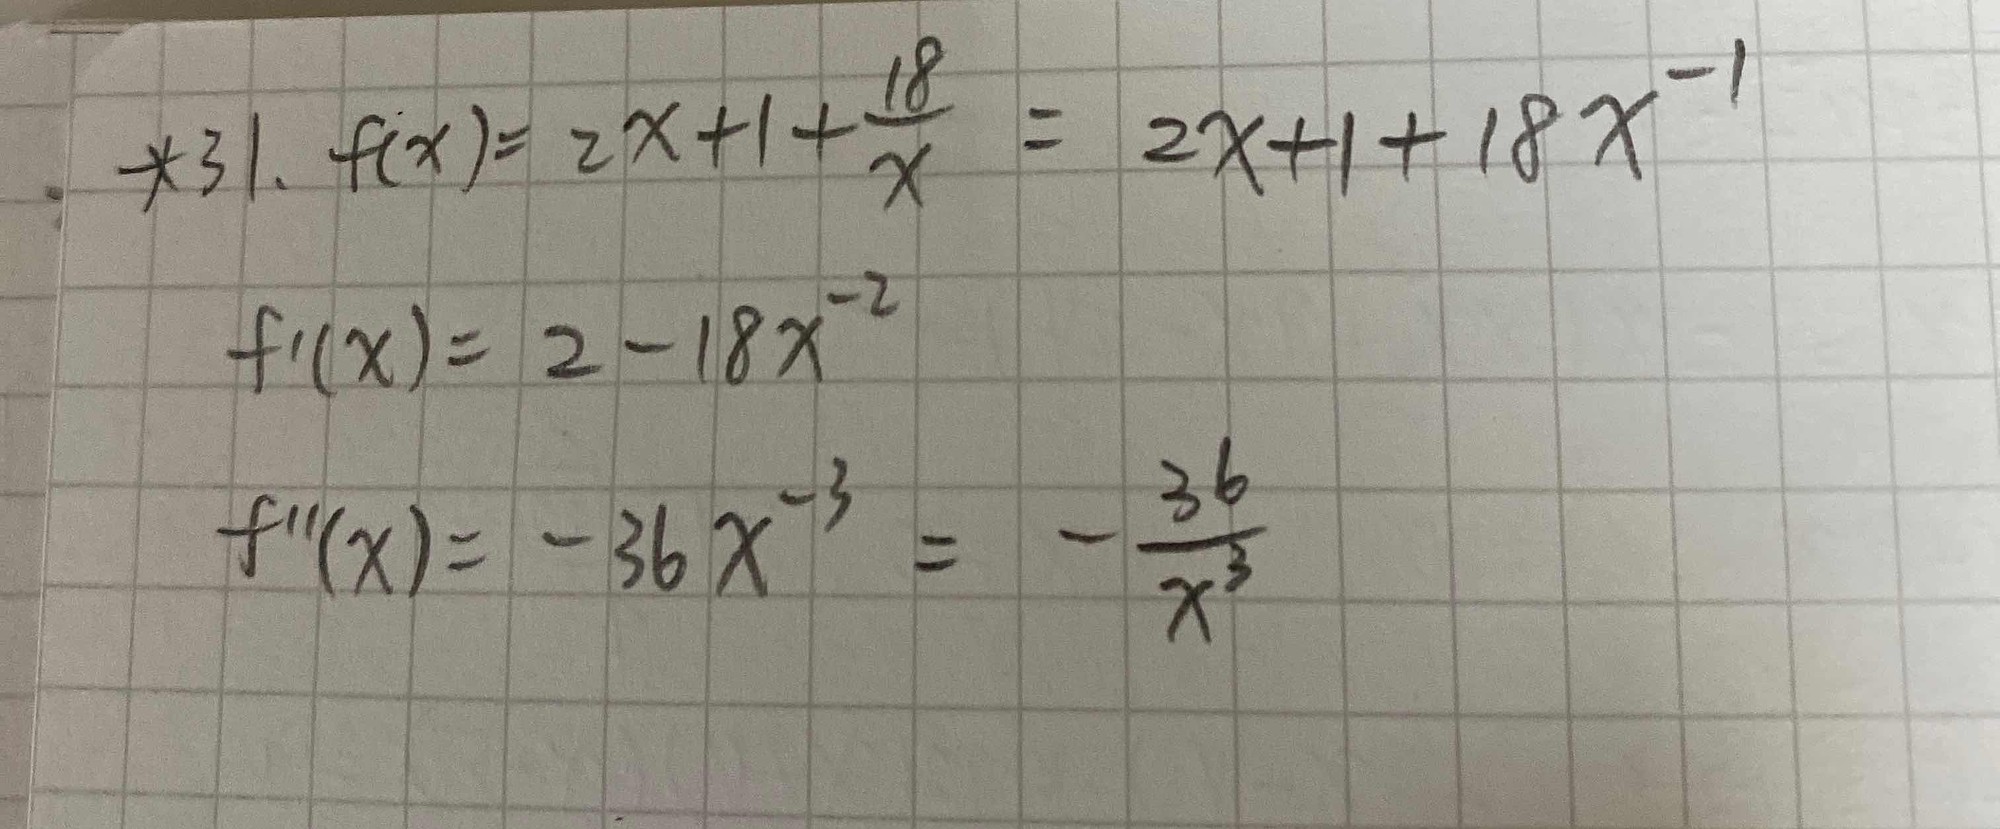 *31. f(x) = 2x+1+\frac{18}{x} = 2x+1+18x^{-1}
f'(x) = 2-18x^{-2}
f''(x) = -36x^{-3} = -\frac{36}{x^3}